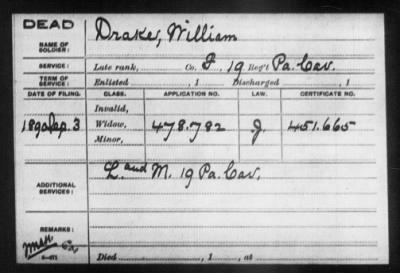 DEAD
NAME OF SOLDIER: Drake, William
SERVICE: Late rank, Co. F, 19 Reg't Pa. Cav.
TERM OF SERVICE: Enlisted , 1 Discharged , 1
DATE OF FILING. CLASS. APPLICATION NO. LAW. CERTIFICATE NO.
Invalid,
1890 Sep. 3 Widow, 478.782 J. 451.665
Minor,
ADDITIONAL SERVICES: L and M. 19 Pa. Cav.
REMARKS:
Died , 1 , at